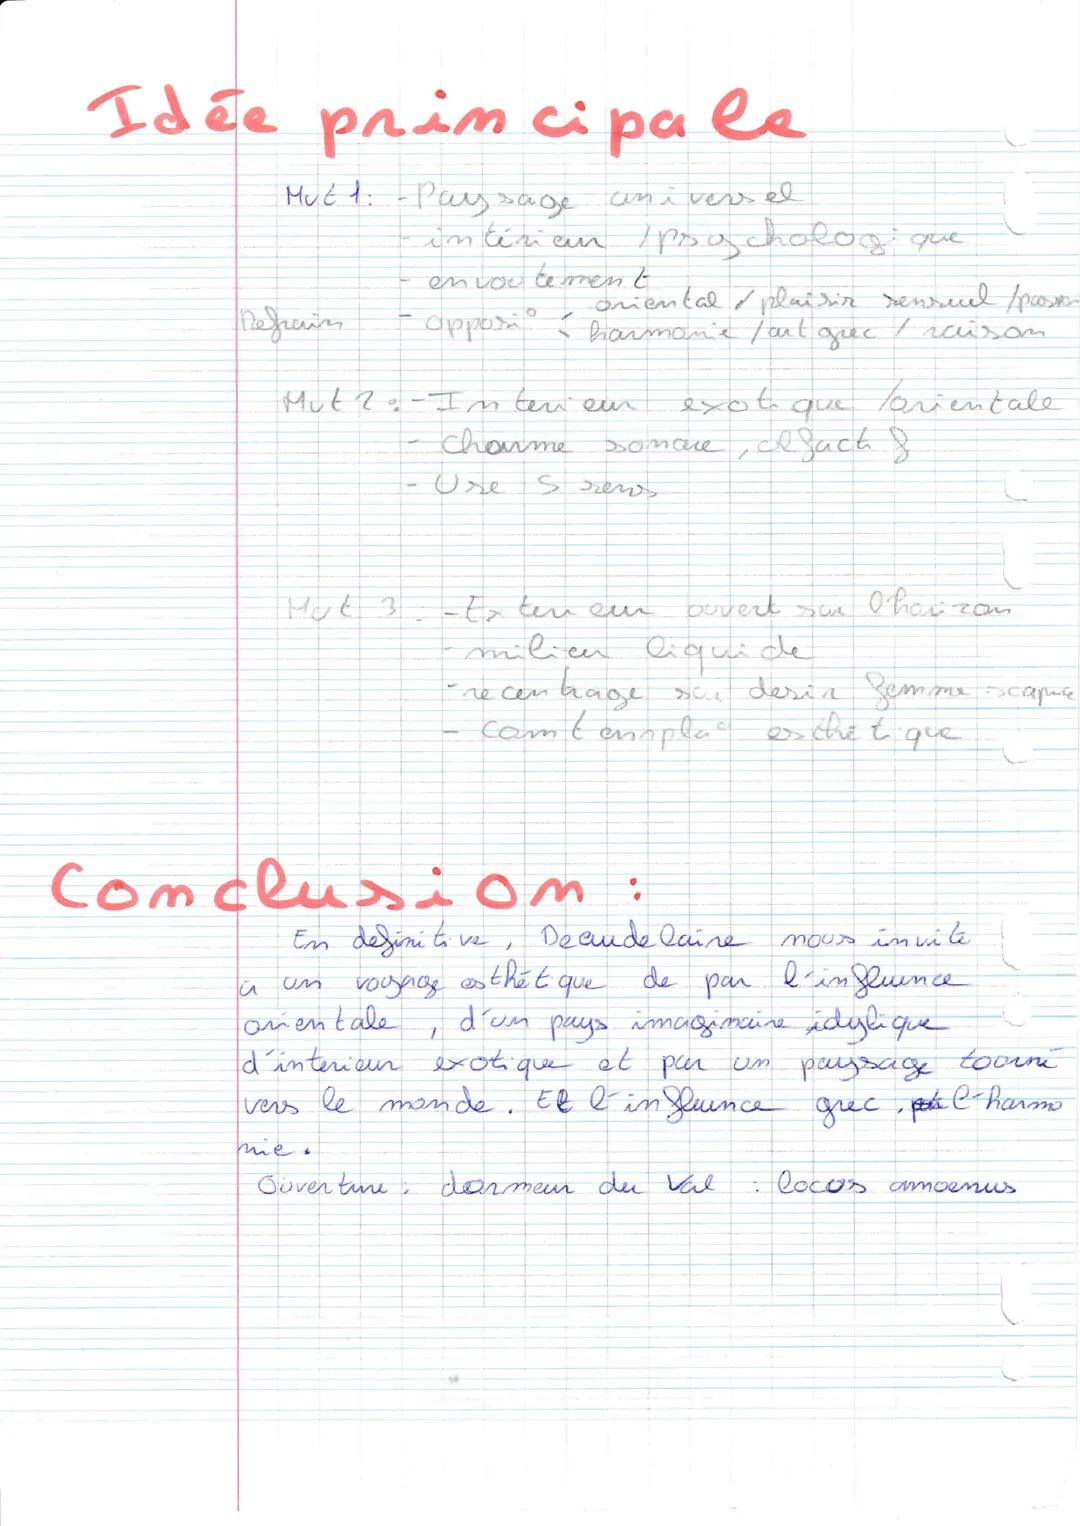 Idée principale
Mvt 1: - Paysage universel
- intérieur / psychologique
- envoutement
oriental / plaisir sensuel / passion
Refrain - opposi° < harmonie / art grec / raison
Mvt 2: - Interieur exotique / orientale
- Charme sonore, olfactif
- Use 5 sens
Mvt 3 - Exterieur ouvert sur l'horizon
- milieu liquide
- recentrage sur desir femme
- contempla° esthétique
Conclusion :
En definitive, Beaudelaire nous invite
a un voyage esthétique de par l'influence
orientale, d'un pays imaginaire idylique
d'interieur exotique et par un paysage tourné
vers le monde. Et l'influence grec, l'harmo
nie.
Ouverture : dormeur du Val : locos amoenus